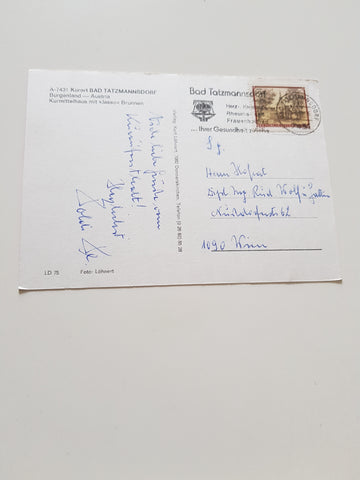 A-7431 Kurort BAD TATZMANNSDORF
Burgenland — Austria
Kurmittelhaus mit klassen Brunnen
Viele liebe Grüße vom
Kuraufenthalt!
Herzlichst
Bad Tatzmannsdorf
Herz-, Kreislauf
Rheuma-
Frauenheil
... Ihrer Gesundheit zuliebe
S.g.
Herrn Hofrat
Dipl. Ing. Rud. Wolf u. Gattin
Nußdorferstr. 62
1090 Wien
LD 75 Foto: Löhnert